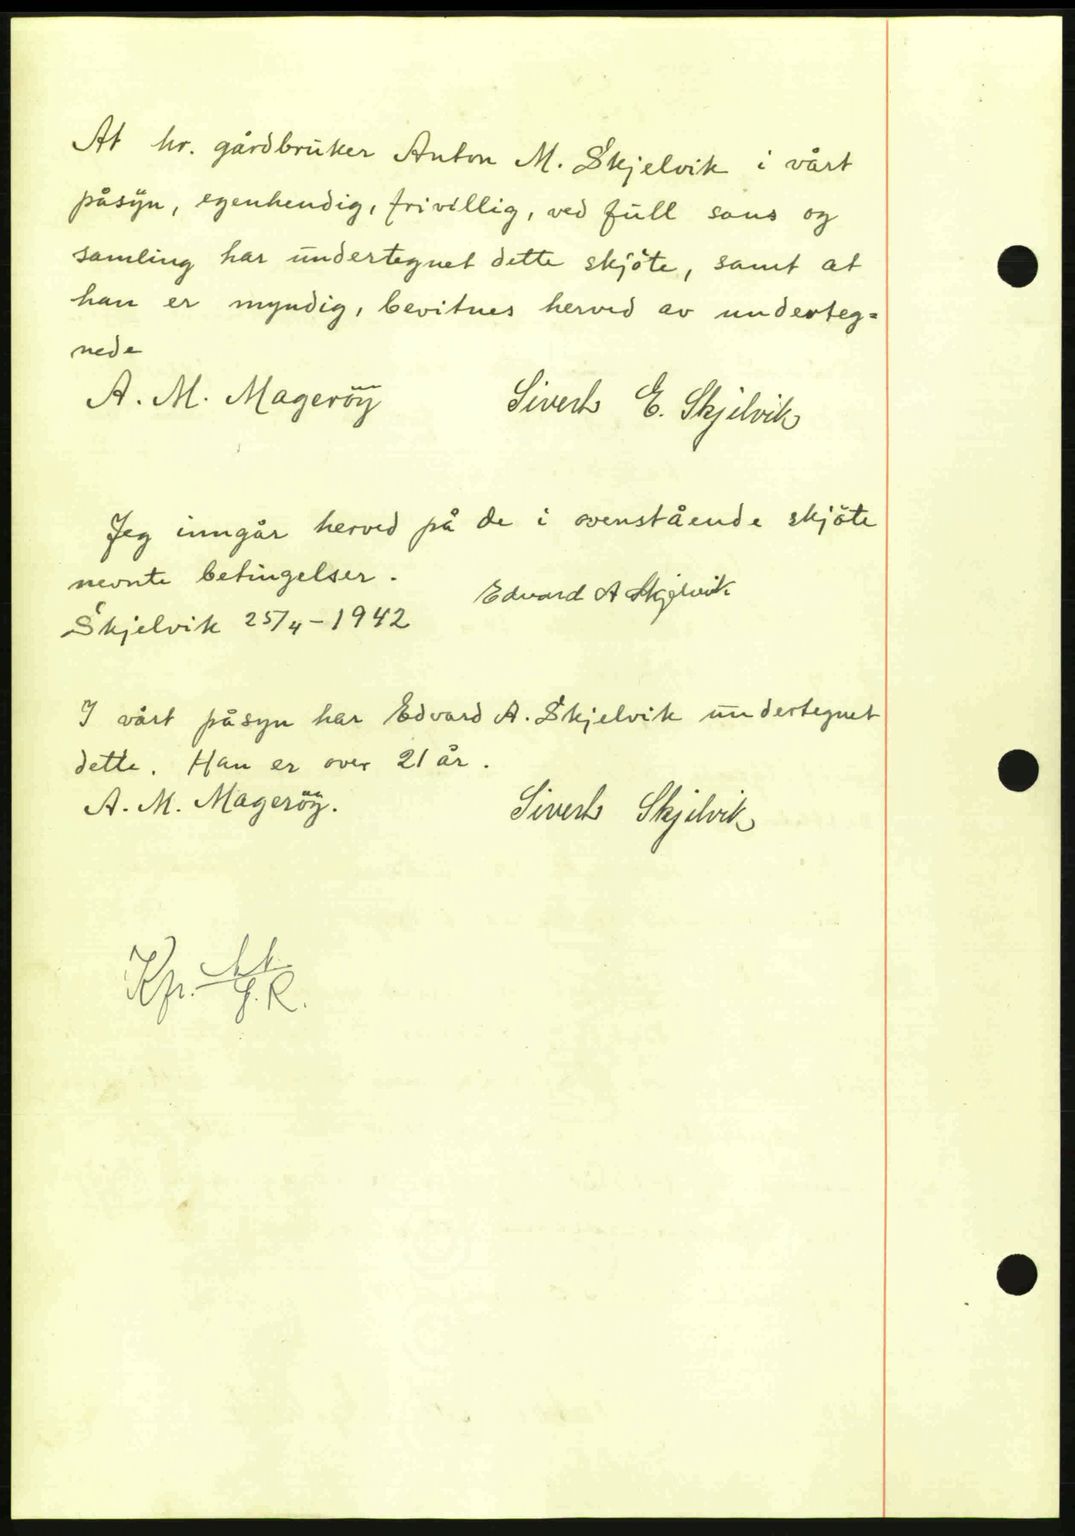 At hr. gårdbruker Anton M. Skjelvik i vårt
påsyn, egenhendig, frivillig, ved full sans og
samling har undertegnet dette skjöte, samt at
han er myndig, bevitnes herved av underteg=
nede
A. M. Mageröy Sivert E. Skjelvik
Jeg inngår herved på de i ovenstående skjöte
nevnte betingelser.
Edvard A Skjelvik
Skjelvik 25/4-1942
I vårt påsyn har Edvard A. Skjelvik undertegnet
dette. Han er over 21 år.
A. M. Mageröy. Sivert Skjelvik
Kp.
G.R.